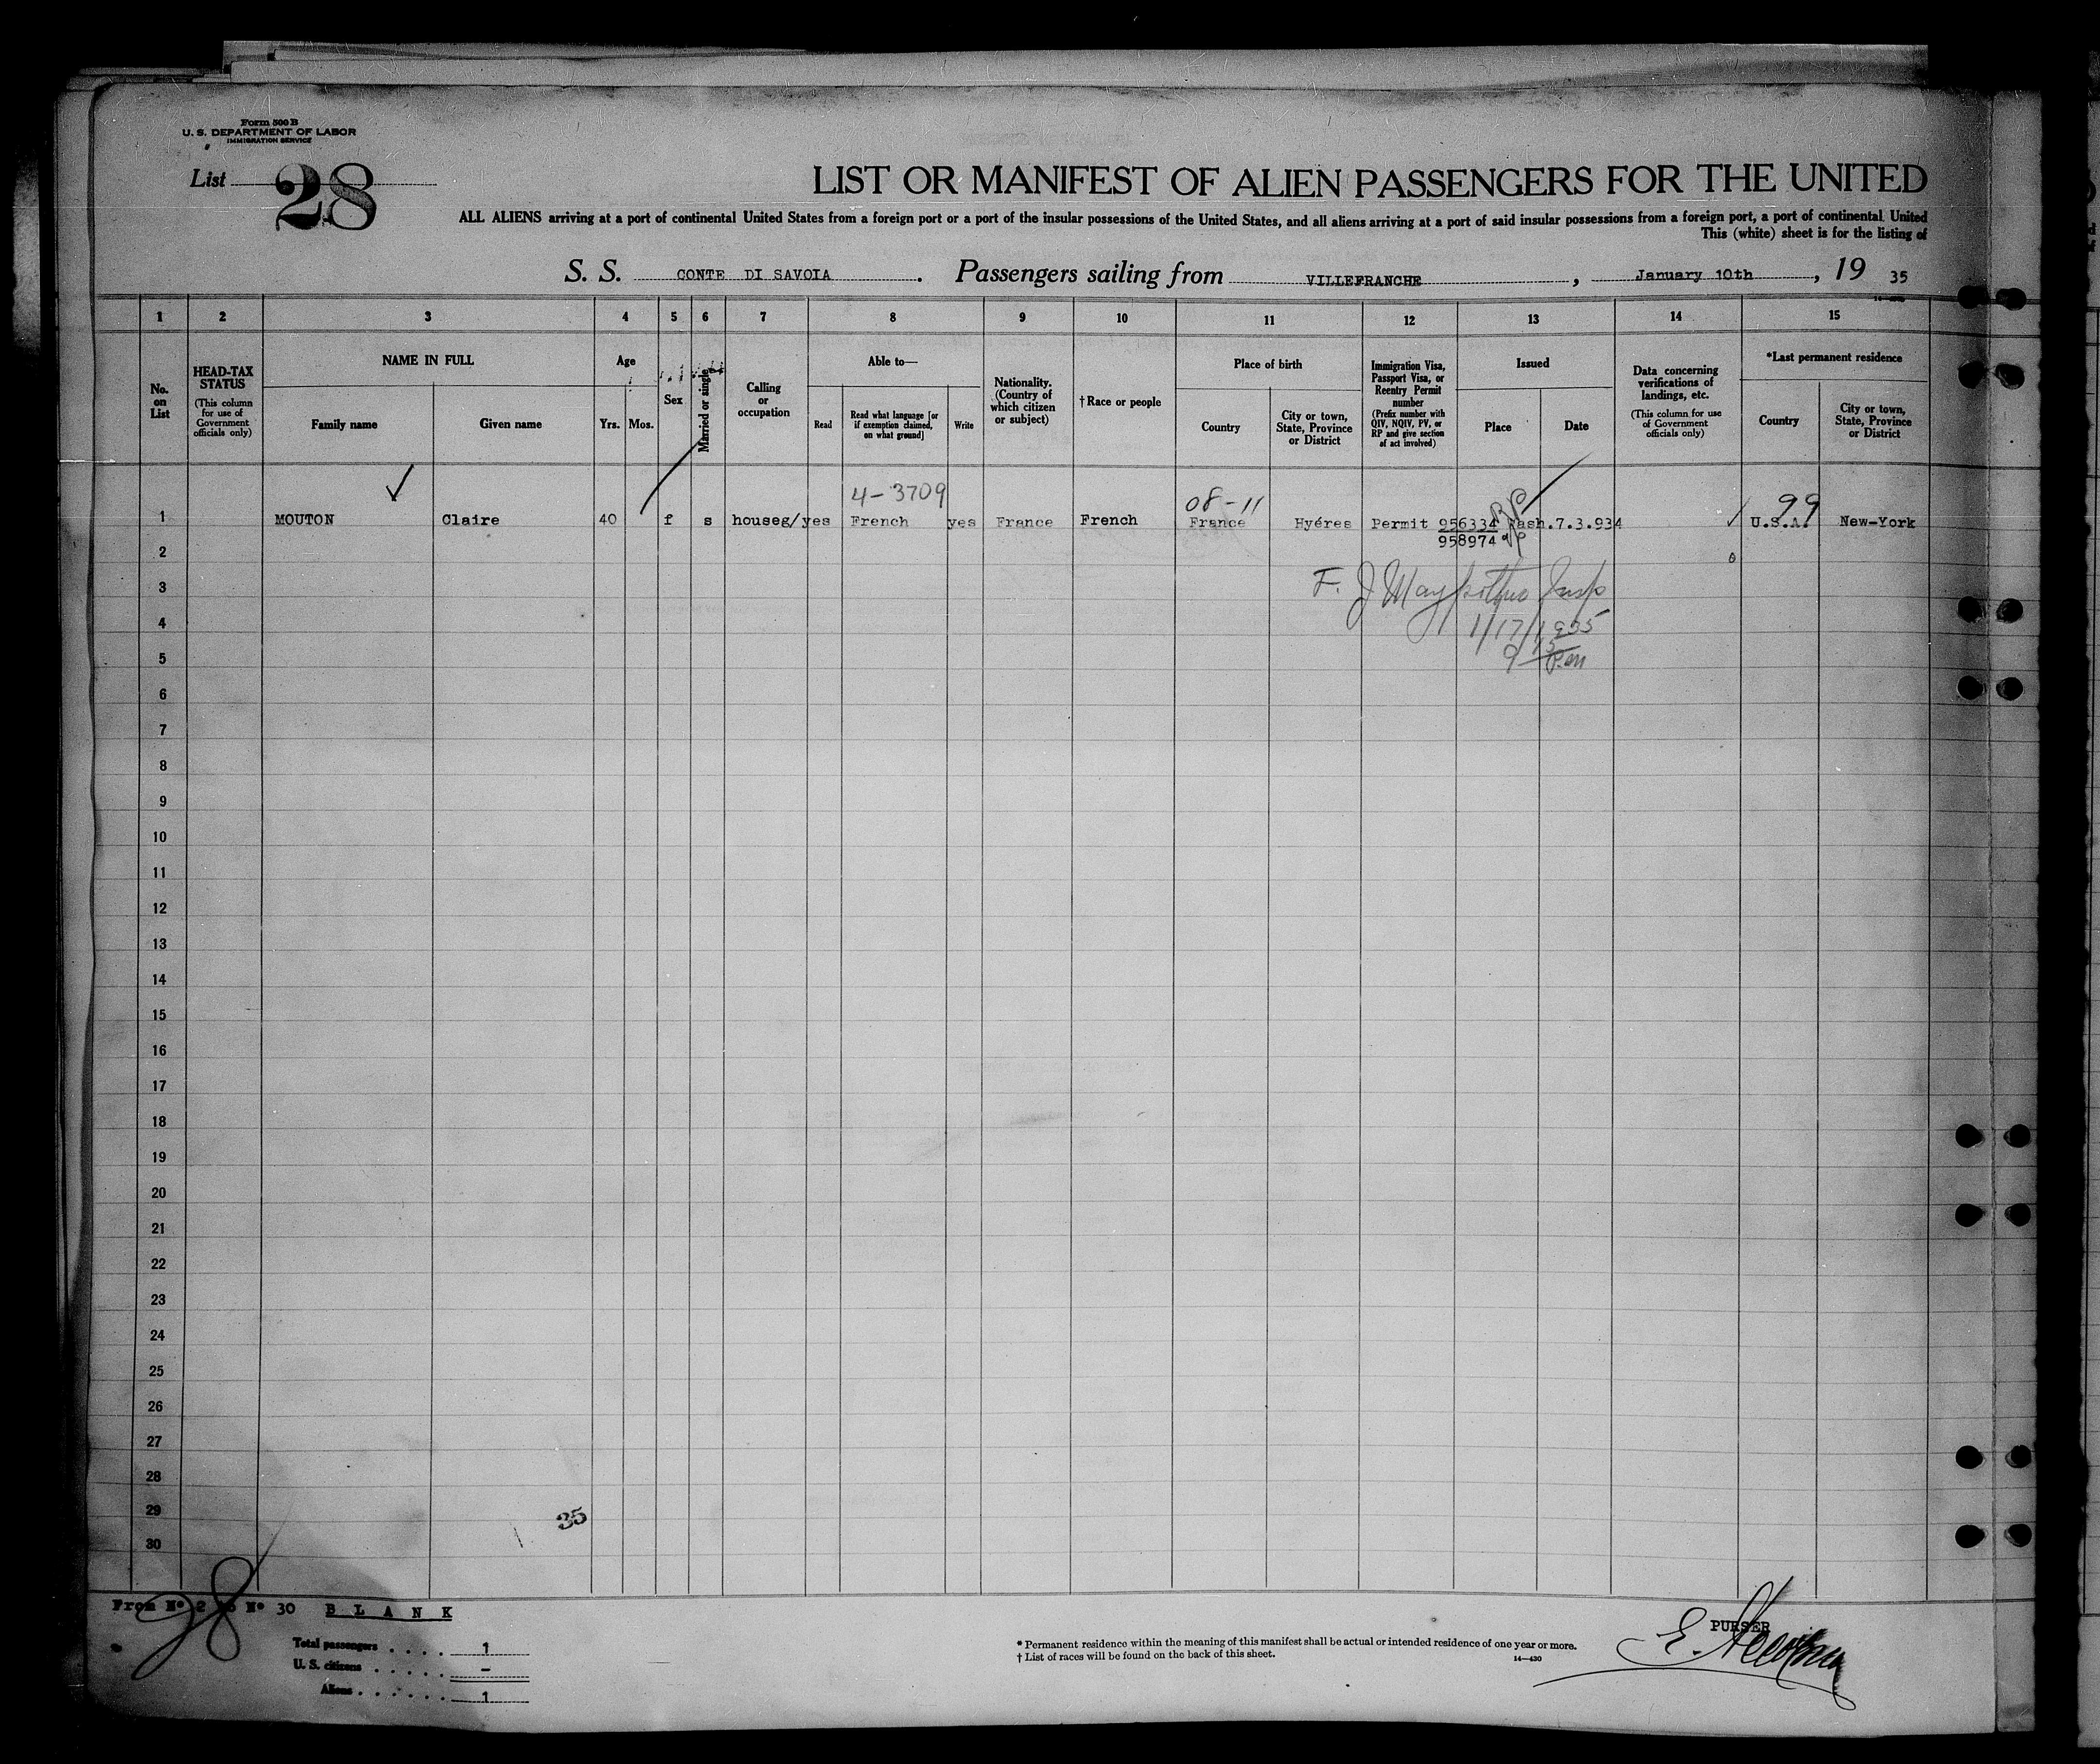 Form 500 B
U. S. DEPARTMENT OF LABOR
IMMIGRATION SERVICE
List 28
LIST OR MANIFEST OF ALIEN PASSENGERS FOR THE UNITED
ALL ALIENS arriving at a port of continental United States from a foreign port or a port of the insular possessions of the United States, and all aliens arriving at a port of said insular possessions from a foreign port, a port of continental United
This (white) sheet is for the listing of
S. S. CONTE DI SAVOIA. Passengers sailing from VILLEFRANCHE, January 10th, 19 35
1 2 3 4 5 6 7 8 9 10 11 12 13 14 15
No. on List
HEAD-TAX STATUS
(This column for use of Government officials only)
NAME IN FULL
Family name
Given name
Age
Yrs.
Mos.
Sex
Married or single
Calling or occupation
Able to—
Read
Read what language [or if exemption claimed, on what ground]
Write
Nationality. (Country of which citizen or subject)
†Race or people
Place of birth
Country
City or town, State, Province or District
Immigration Visa, Passport Visa, or Reentry Permit number
(Prefix number with QIV, NQIV, PV, or RP and give section of act involved)
Issued
Place
Date
Data concerning verifications of landings, etc.
(This column for use of Government officials only)
*Last permanent residence
Country
City or town, State, Province or District
4-3709 08-11 RP 99
1 MOUTON Claire 40 f s houseg/yes French yes France French France Hyéres Permit 956334 Wash.7.3.934 U.S.A. New-York
958974
2
F. J May Insp
3
1/17/1935
4
9 15 P.M
5
6
7
8
9
10
11
12
13
14
15
16
17
18
19
20
21
22
23
24
25
26
27
28
29
35
30
From Nº 2 to Nº 30 B L A N K
28
Total passengers . . . . 1
U. S. citizens . . . . . –
Aliens . . . . . . 1
* Permanent residence within the meaning of this manifest shall be actual or intended residence of one year or more.
† List of races will be found on the back of this sheet.
14—430
PURSER